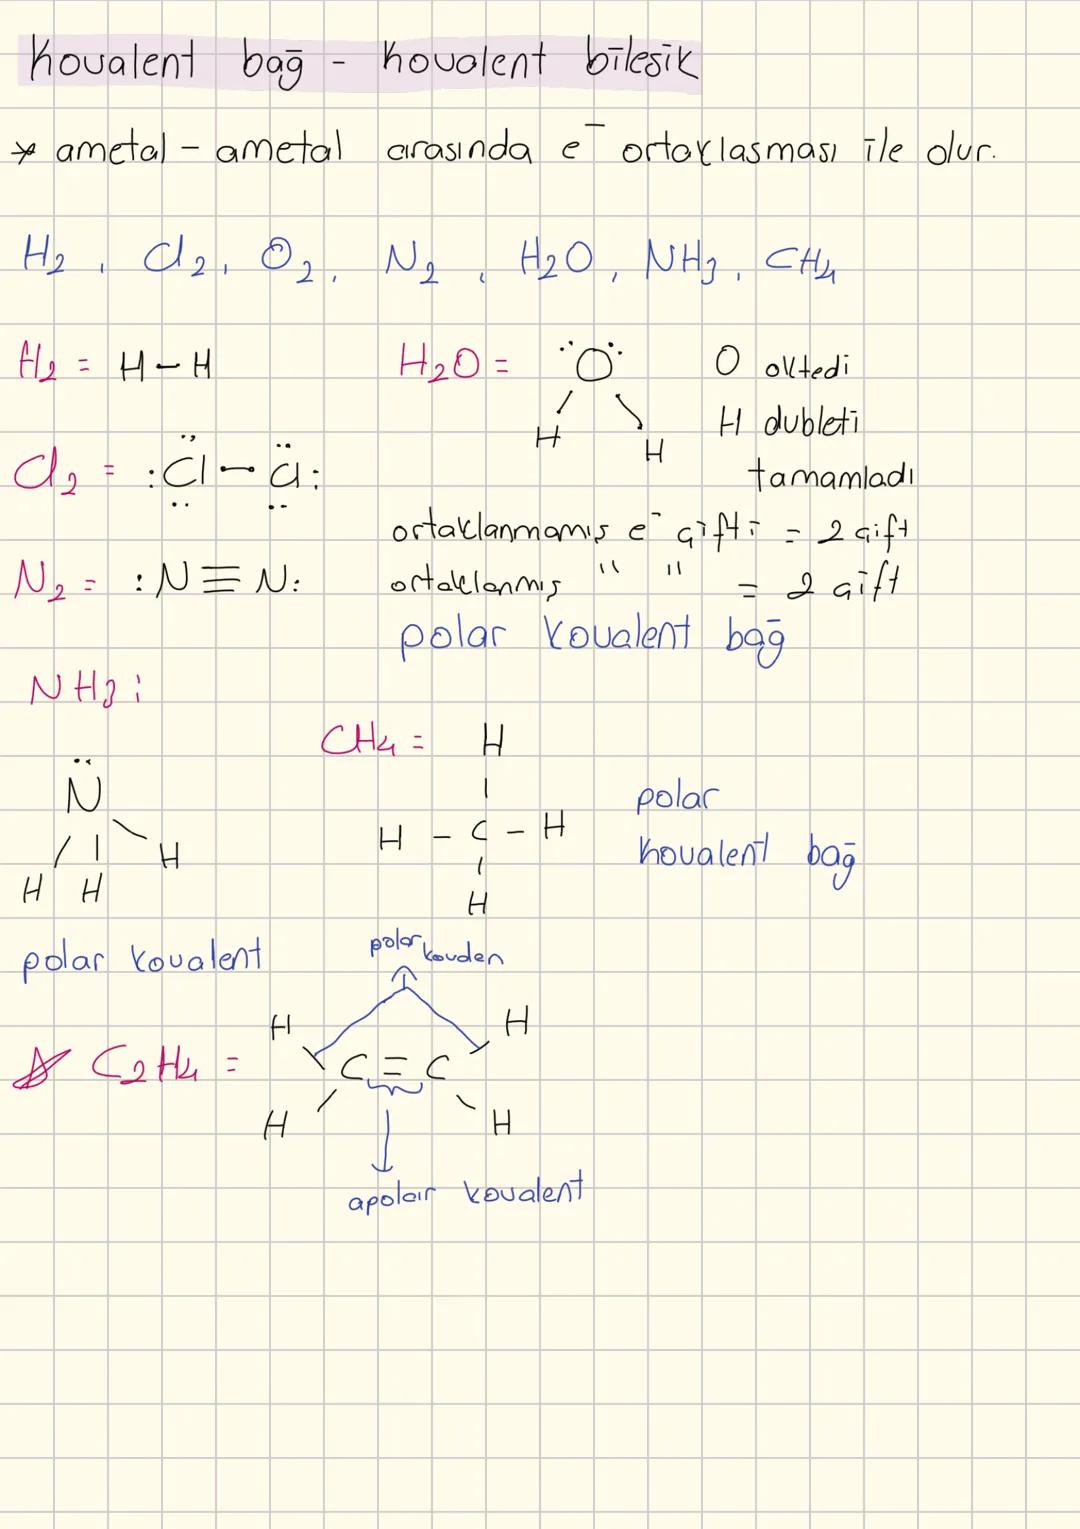 Kovalent bağ - kovalent bileşik
* ametal - ametal arasında e⁻ ortaklaşması ile olur.
H₂, Cl₂, O₂, N₂, H₂O, NH₃, CH₄
H₂ = H – H
H₂O = O
H H
O oktedi
H dubleti
tamamladı
Cl₂ = :Cl – Cl:
ortaklanmamış e⁻ çifti = 2 çift
N₂ = :N ≡ N:
ortaklanmış " " = 2 çift
polar kovalent bağ
NH₃:
N
H H H
polar kovalent
CH₄ = H
H - C - H
H
polar
kovalent bağ
polar kovalen
C₂H₄ =
H H
C = C
H H
apolar kovalent